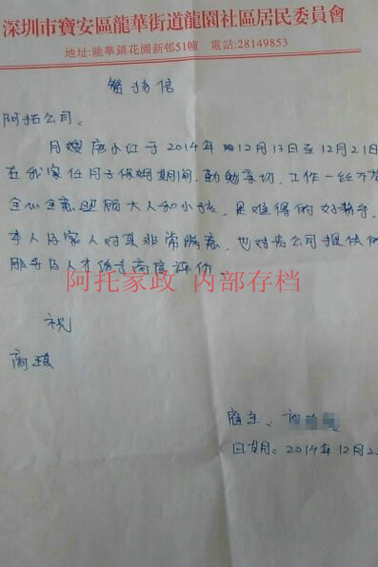 深圳市寶安區龍華街道龍園社區居民委員會
地址:龍華鎮花園新邨51幢 電話:28149853
赞扬信
阿托公司:
月嫂 小红于2014年 12月13日至12月21日
在我家任月子保姆期间,勤勉亲切,工作一丝不
全心全意照顾大人和小孩,是难得的好帮手。
本人及家人对其非常满意,也对贵公司提供的
服务及人才给予高度评价。
阿托家政 内部存档
祝
商祺
雇主:
日期:2014年12月2